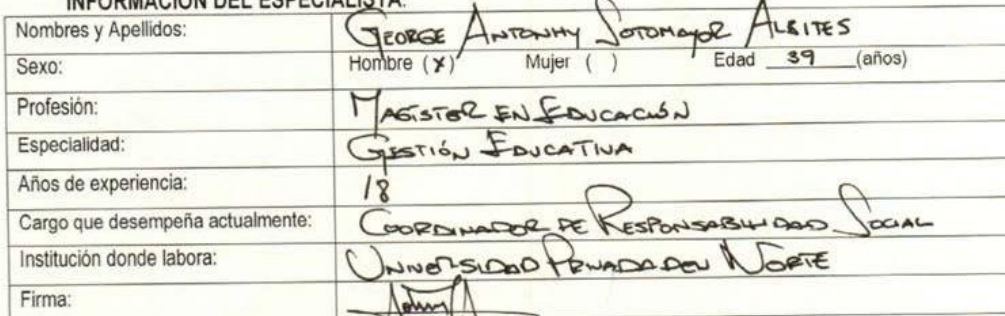 INFORMACIÓN DEL ESPECIALISTA:
Nombres y Apellidos: GEORGE ANTONHY SOTOMAYOR ALBITES
Sexo: Hombre (x) Mujer ( ) Edad 39 (años)
Profesión: MAGÍSTER EN EDUCACIÓN
Especialidad: GESTIÓN EDUCATIVA
Años de experiencia: 18
Cargo que desempeña actualmente: COORDINADOR DE RESPONSABILIDAD SOCIAL
Institución donde labora: UNIVERSIDAD PRIVADA DEL NORTE
Firma: